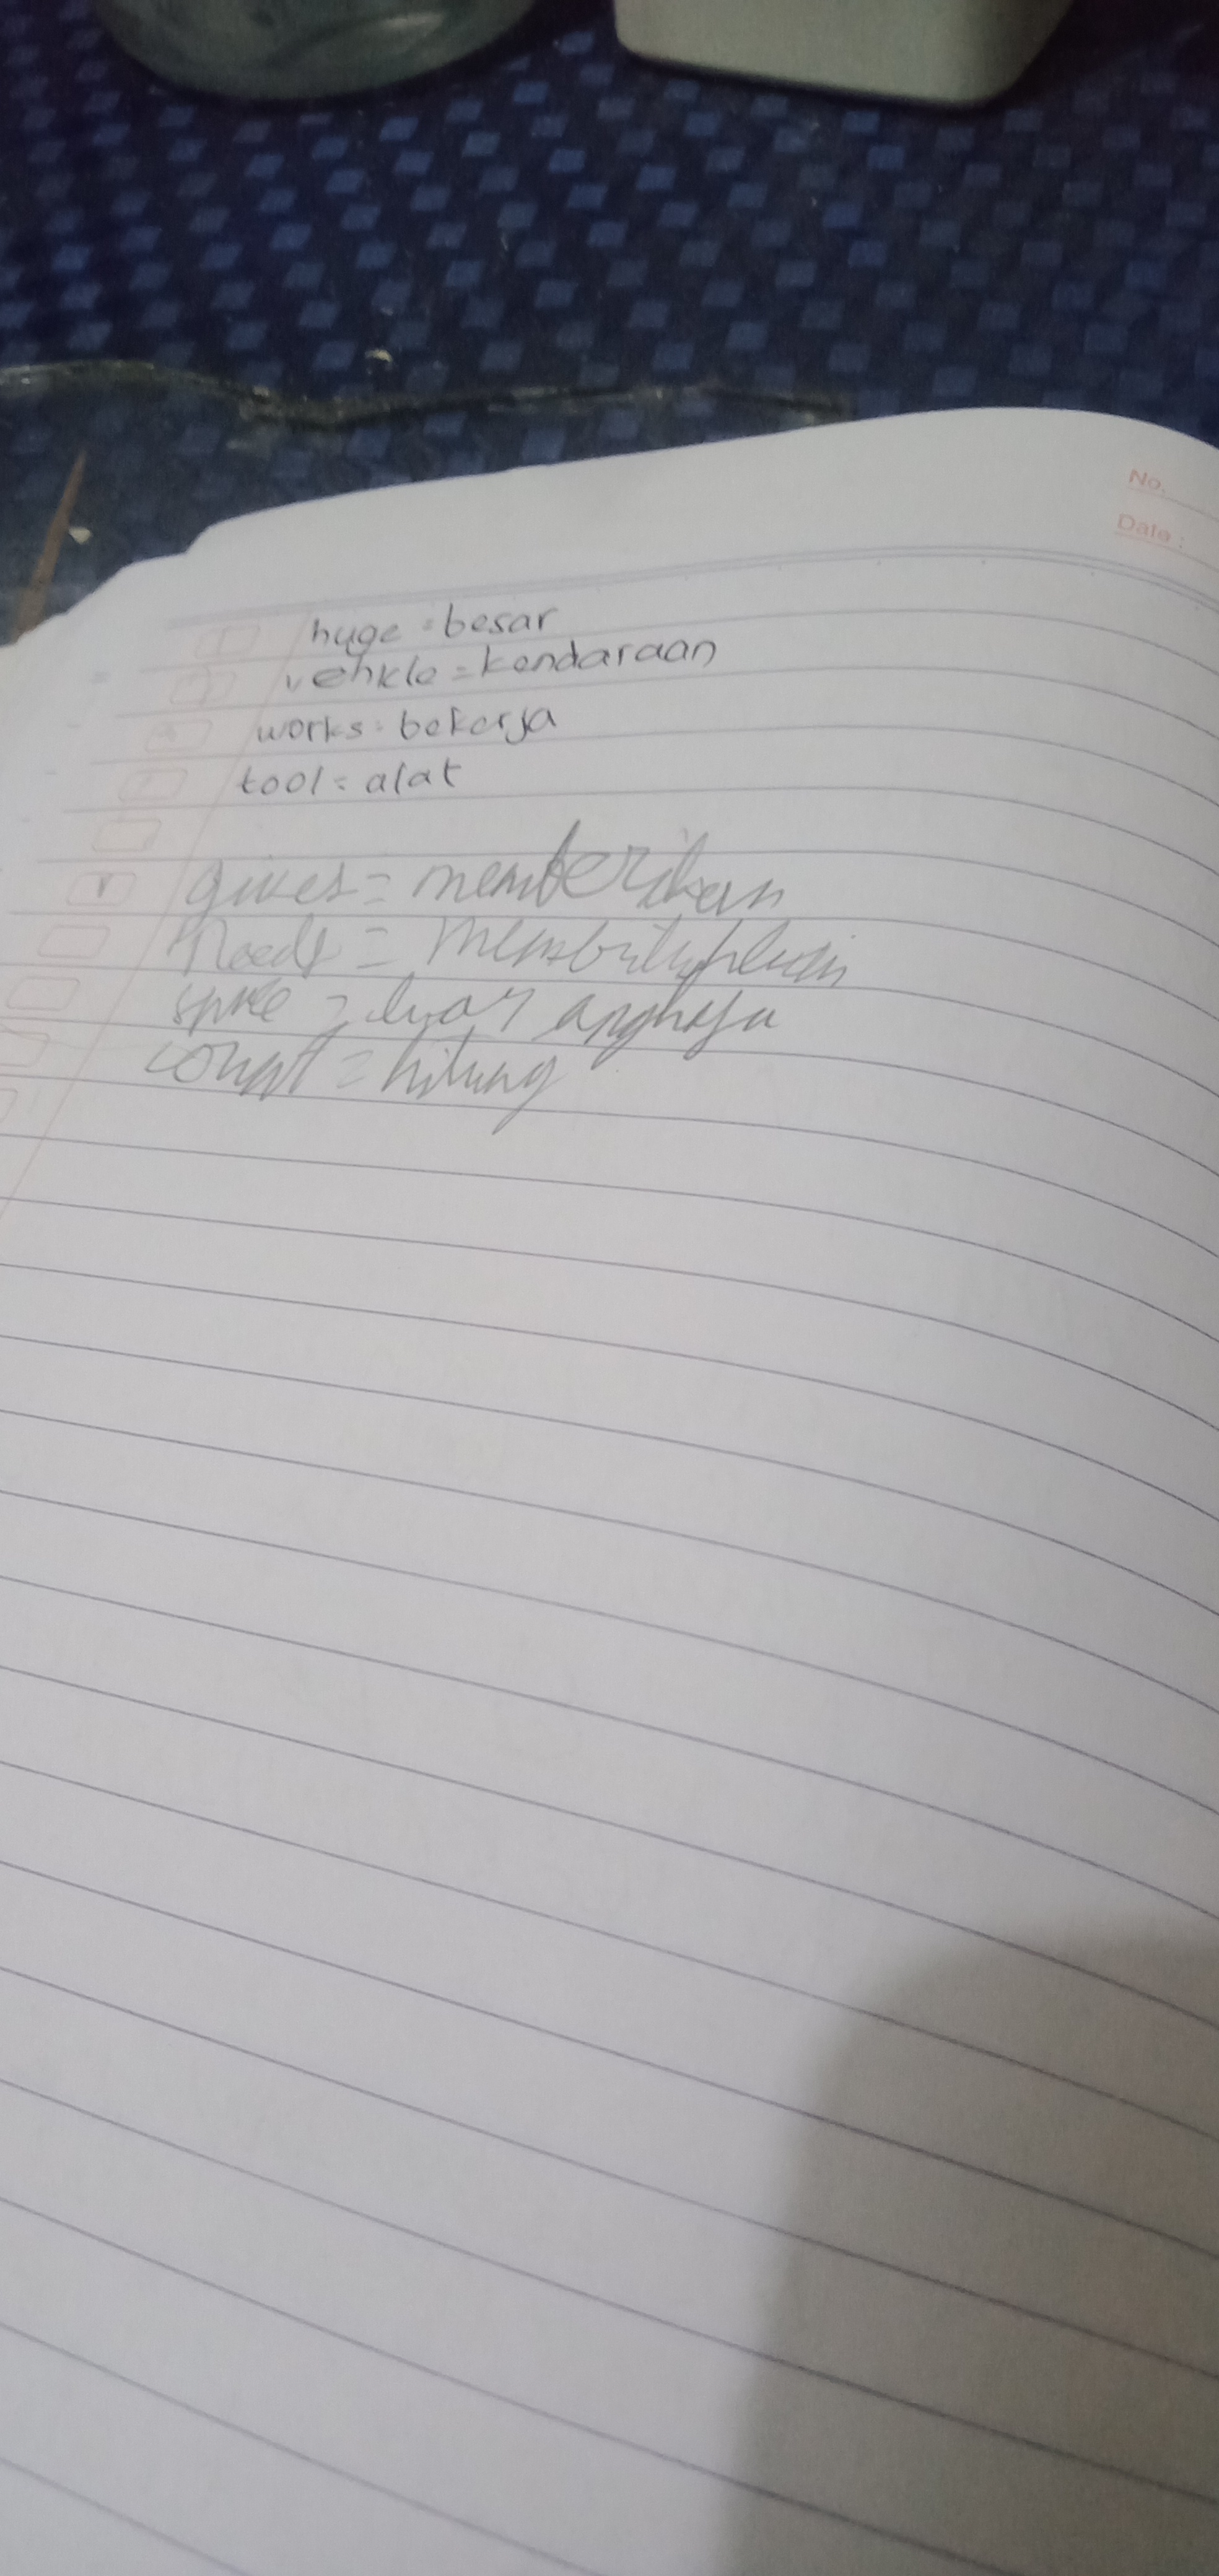 No.
Date :
huge = besar
vehicle = kendaraan
works = bekerja
tool = alat
gives = memberikan
Needs = membutuhkan
space = luar angkasa
count = hitung